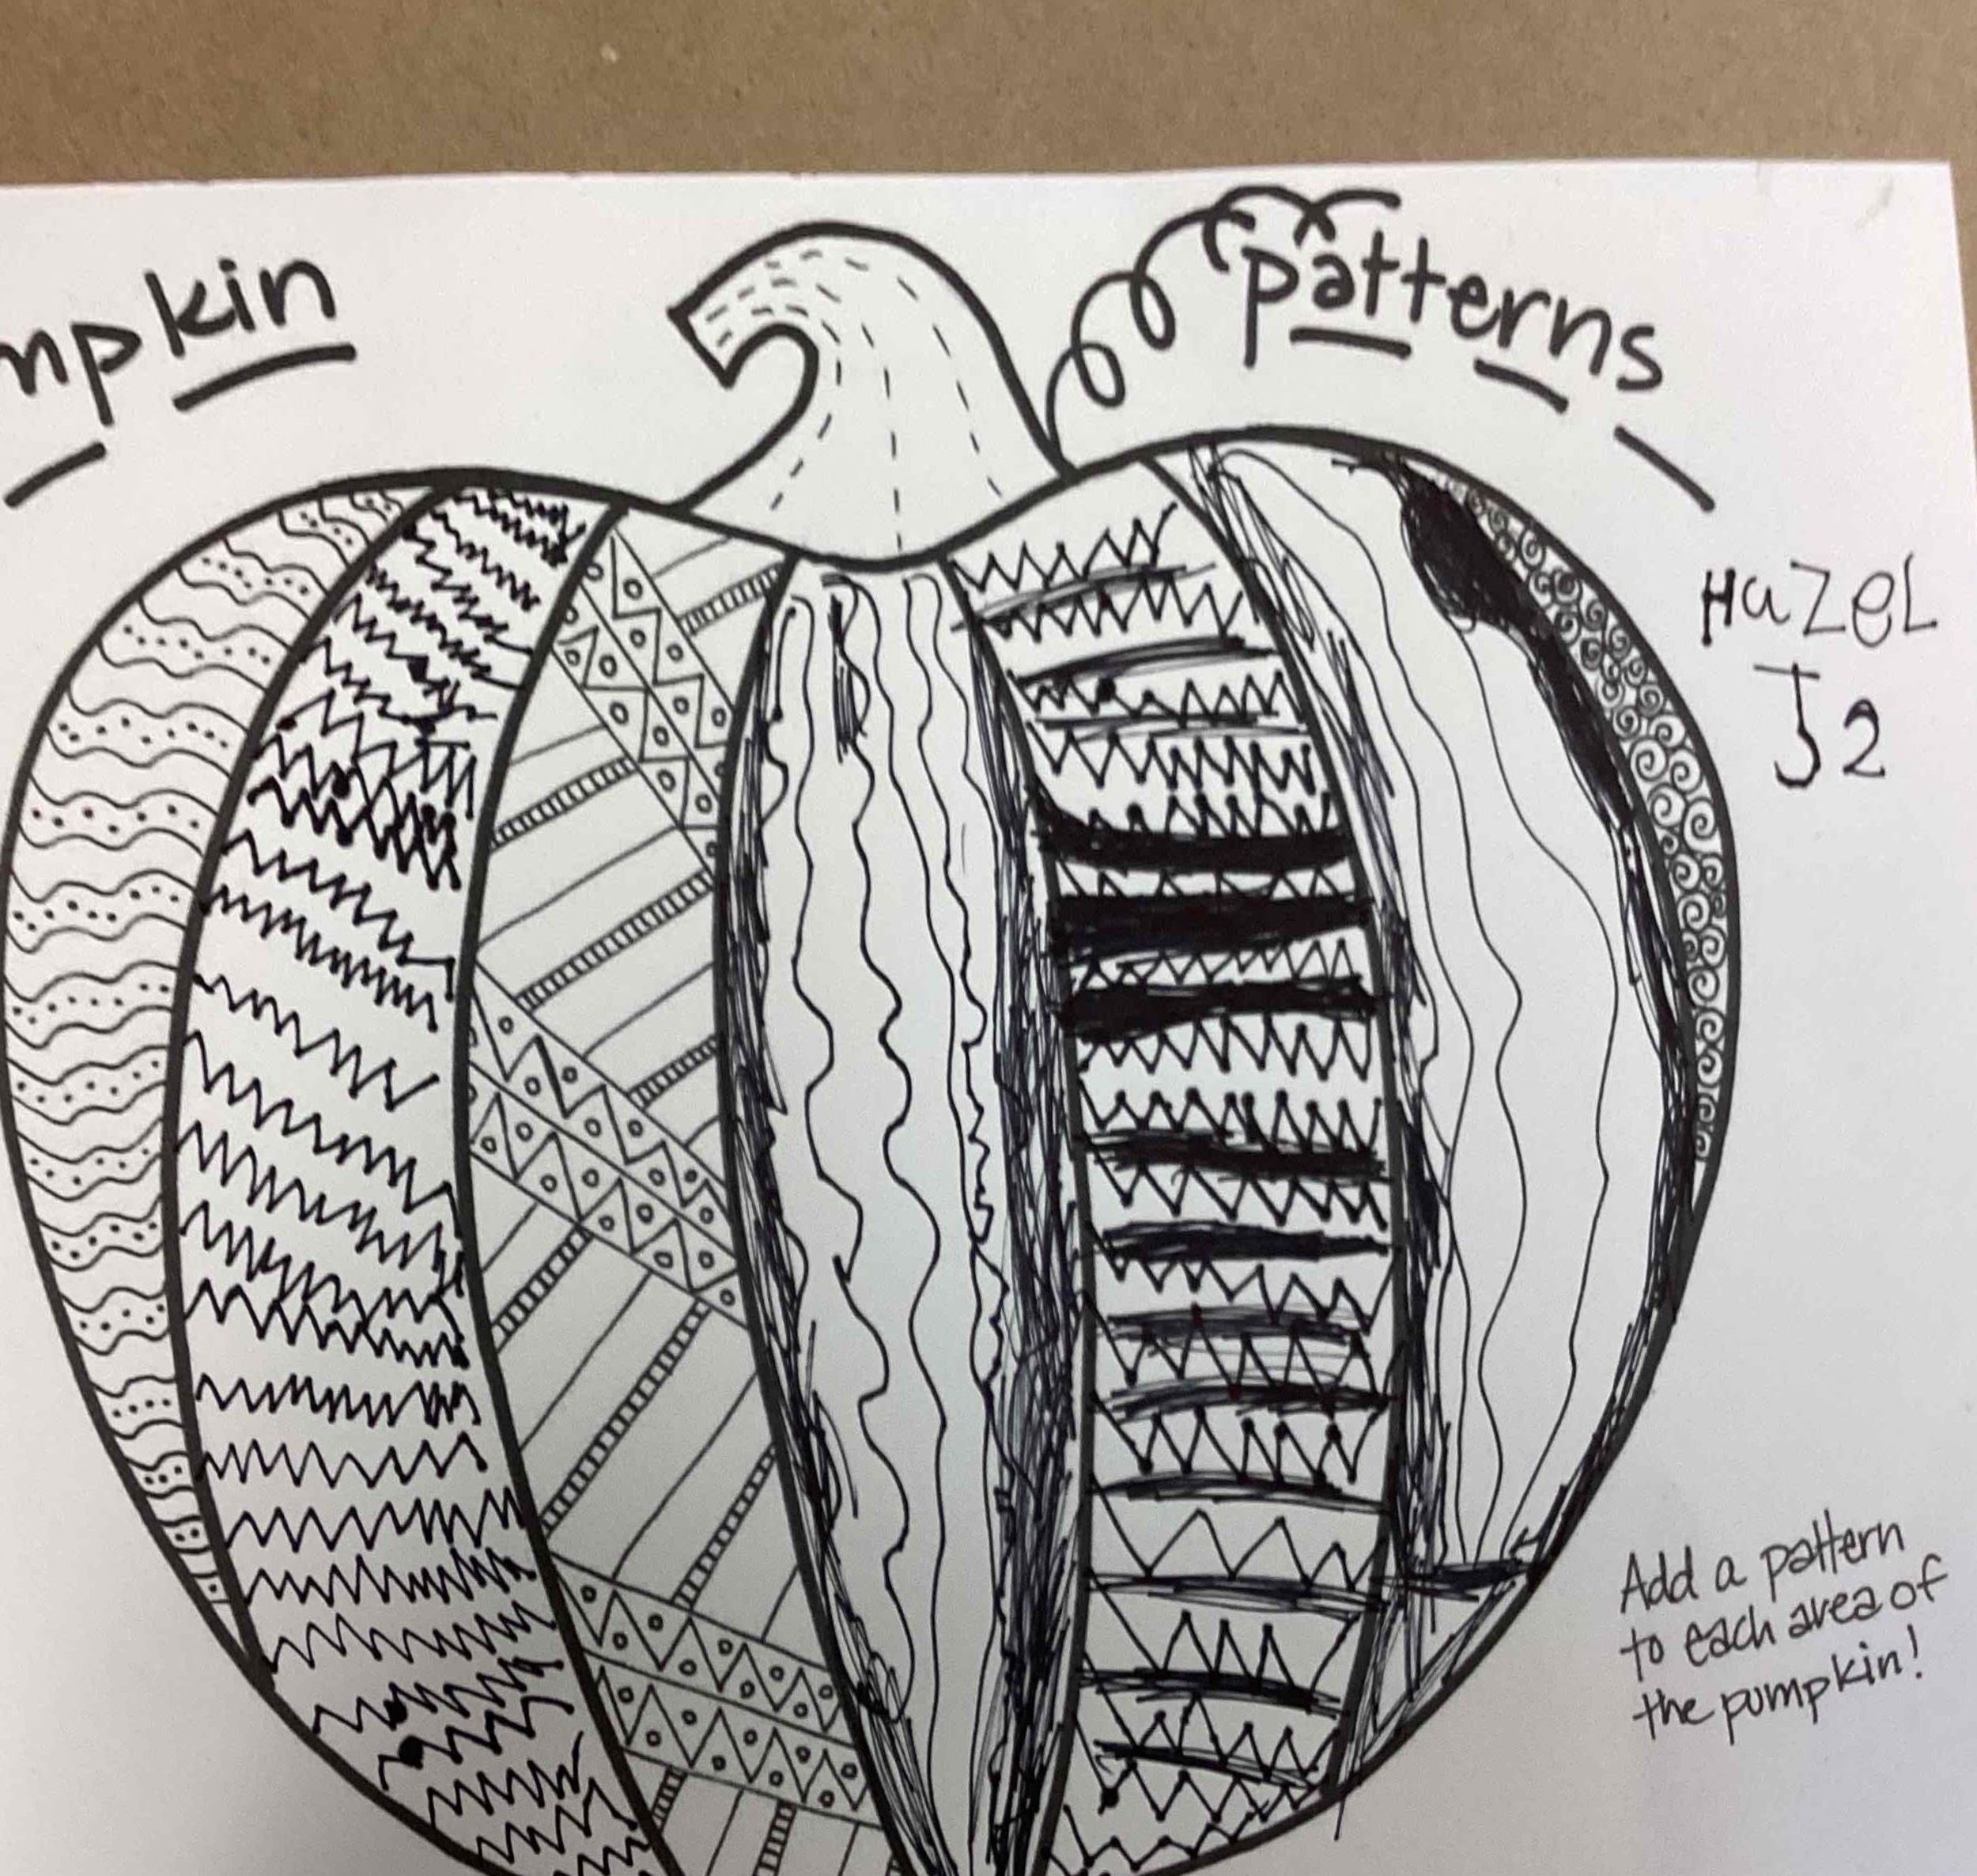 mpkin
patterns
HaZeL
J2
Add a pattern
to each area of
the pumpkin!